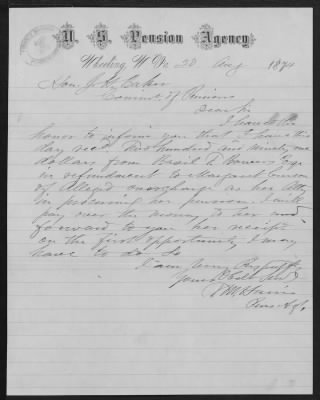 U. S. Pension Agency
Wheeling, W. Va. 28 Aug 1871
Hon. J. H. Baker
Commr. of Pensions
Dear Sir
I have the
honor to inform you that I have this
day recd. Two hundred and ninety one
dollars from Basil T. Bowers Esqr
in refundment to Margaret
of Alleged overcharge as her Atty
in procuring her pension. I will
pay over the money to her and
forward to you her receipt
on the first opportunity I may
have to do so
I am Very Respectfully
Your Obedt Servt
Pens. Agt.